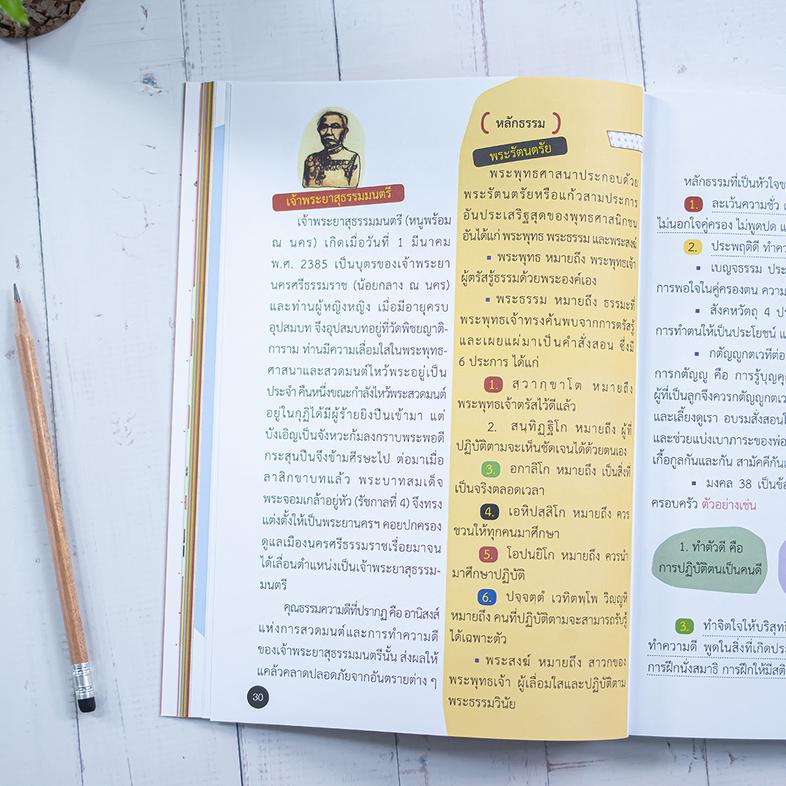 เจ้าพระยาสุธรรมมนตรี
เจ้าพระยาสุธรรมมนตรี (หนูพร้อม
ณ นคร) เกิดเมื่อวันที่ 1 มีนาคม
พ.ศ. 2385 เป็นบุตรของเจ้าพระยา
นครศรีธรรมราช (น้อยกลาง ณ นคร)
และท่านผู้หญิงหญิง เมื่อมีอายุครบ
อุปสมบท จึงอุปสมบทอยู่ที่วัดพิชยญาติ-
การาม ท่านมีความเลื่อมใสในพระพุทธ-
ศาสนาและสวดมนต์ไหว้พระอยู่เป็น
ประจำ คืนหนึ่งขณะกำลังไหว้พระสวดมนต์
อยู่ในกุฏิได้มีผู้ร้ายยิงปืนเข้ามา แต่
บังเอิญเป็นจังหวะก้มลงกราบพระพอดี
กระสุนปืนจึงข้ามศีรษะไป ต่อมาเมื่อ
ลาสิกขาบทแล้ว พระบาทสมเด็จ
พระจอมเกล้าอยู่หัว (รัชกาลที่ 4) จึงทรง
แต่งตั้งให้เป็นพระยานครฯ คอยปกครอง
ดูแลเมืองนครศรีธรรมราชเรื่อยมาจน
ได้เลื่อนตำแหน่งเป็นเจ้าพระยาสุธรรม-
มนตรี
คุณธรรมความดีที่ปรากฏ คือ อานิสงส์
แห่งการสวดมนต์และการทำความดี
ของเจ้าพระยาสุธรรมมนตรีนั้น ส่งผลให้
แคล้วคลาดปลอดภัยจากอันตรายต่าง ๆ
30
(หลักธรรม)
พระรัตนตรัย
พระพุทธศาสนาประกอบด้วย
พระรัตนตรัยหรือแก้วสามประการ
อันประเสริฐสุดของพุทธศาสนิกชน
อันได้แก่ พระพุทธ พระธรรม และพระสงฆ์
▪ พระพุทธ หมายถึง พระพุทธเจ้า
ผู้ตรัสรู้ธรรมด้วยพระองค์เอง
▪ พระธรรม หมายถึง ธรรมะที่
พระพุทธเจ้าทรงค้นพบจากการตรัสรู้
และเผยแผ่มาเป็นคำสั่งสอน ซึ่งมี
6 ประการ ได้แก่
1. สฺวากฺขาโต หมายถึง
พระพุทธเจ้าตรัสไว้ดีแล้ว
2. สนฺทิฏฺฐิโก หมายถึง ผู้ที่
ปฏิบัติตามจะเห็นชัดเจนได้ด้วยตนเอง
3. อกาลิโก หมายถึง เป็นสิ่งที่
เป็นจริงตลอดเวลา
4. เอหิปสฺสิโก หมายถึง ควร
ชวนให้ทุกคนมาศึกษา
5. โอปนยิโก หมายถึง ควรนำ
มาศึกษาปฏิบัติ
6. ปจฺจตฺตํ เวทิตพฺโพ วิญฺญูหิ
หมายถึง คนที่ปฏิบัติตามจะสามารถรับรู้
ได้เฉพาะตัว
▪ พระสงฆ์ หมายถึง สาวกของ
พระพุทธเจ้า ผู้เลื่อมใสและปฏิบัติตาม
พระธรรมวินัย
หลักธรรมที่เป็นหัวใจข
1. ละเว้นความชั่ว
ไม่นอกใจคู่ครอง ไม่พูดปด
2. ประพฤติดี ทำคว
▪ เบญจธรรม ประ
การพอใจในคู่ครองตน ความ
▪ สังคหวัตถุ 4 ป
การทำตนให้เป็นประโยชน์
▪ กตัญญูกตเวทีต่อ
การกตัญญู คือ การรู้บุญคุ
ผู้ที่เป็นลูกจึงควรกตัญญูกตเว
และเลี้ยงดูเรา อบรมสั่งสอน
และช่วยแบ่งเบาภาระของพ่อ
เกื้อกูลกันและกัน สามัคคีกัน
▪ มงคล 38 เป็นข้อ
ครอบครัว ตัวอย่างเช่น
1. ทำตัวดี คือ
การปฏิบัติตนเป็นคนดี
3. ทำจิตใจให้บริสุทธิ
ทำความดี พูดในสิ่งที่เกิดประ
การฝึกนั่งสมาธิ การฝึกให้มีสติ